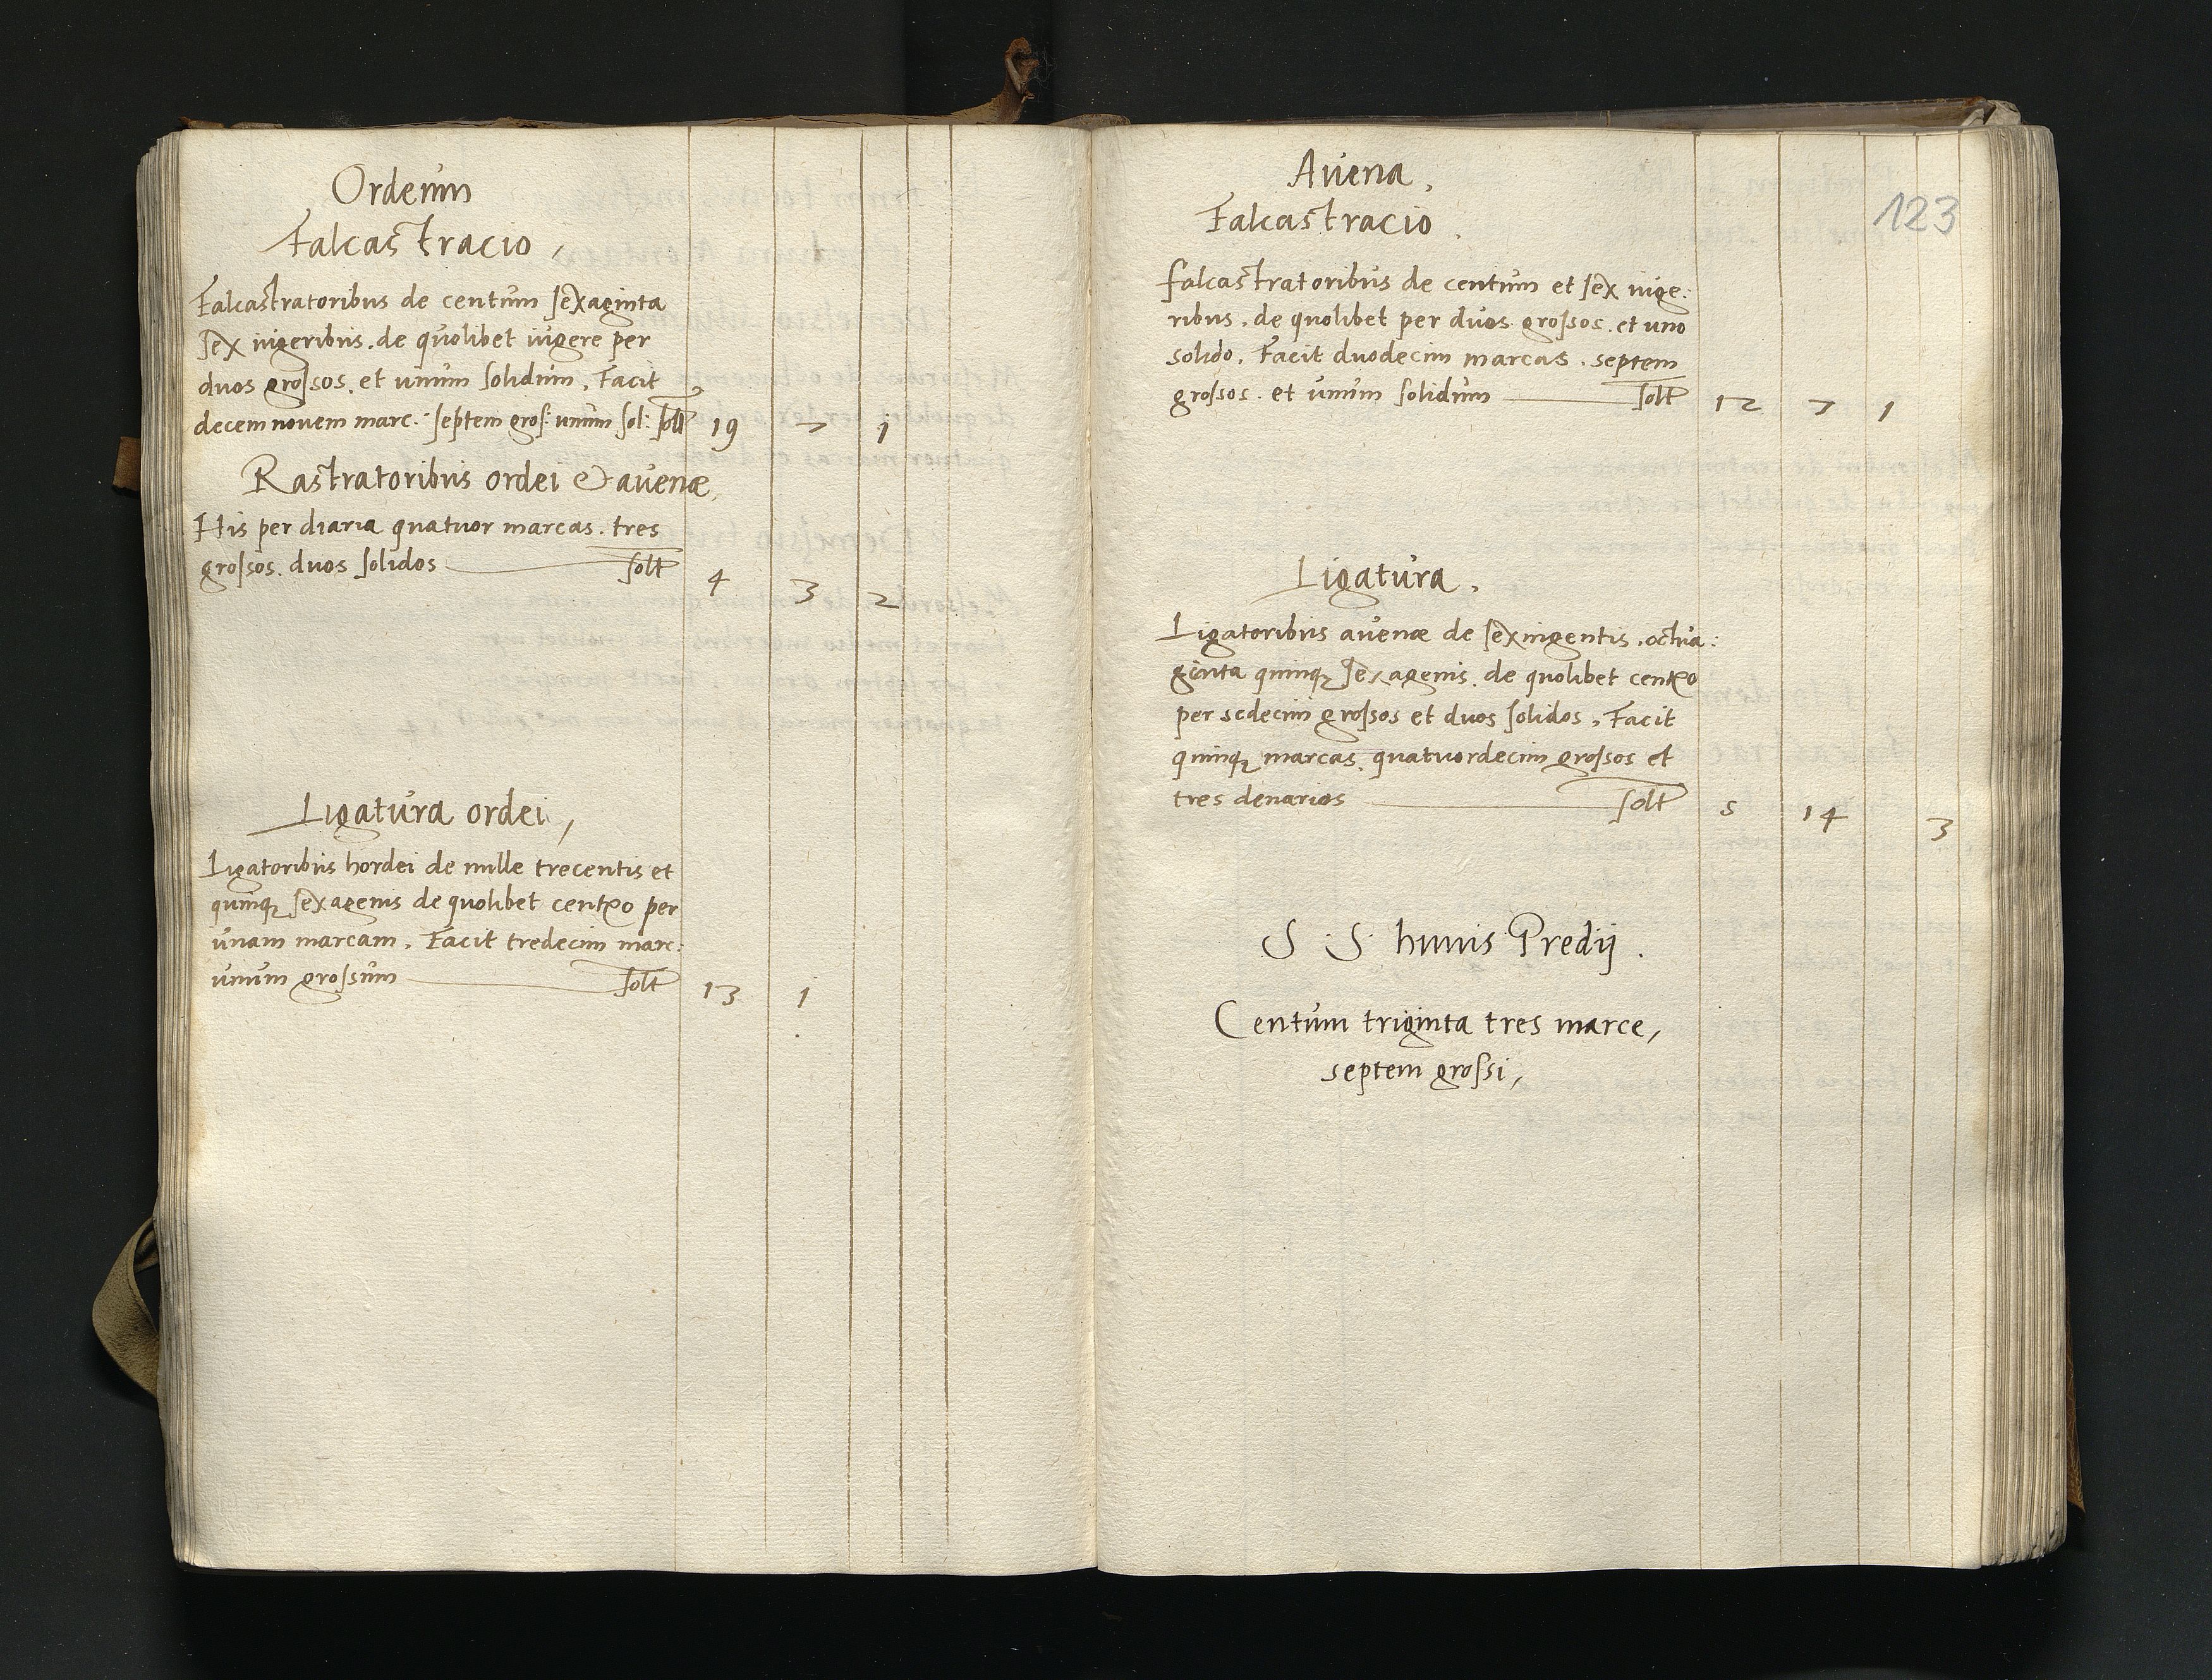 Ordeum
Falcastracio,
Falcastratoribus de centum sexaginta
sex iugeribus. de quolibet iugere per
duos grossos. et unum solidum. Facit
decem novem marc: septem gros: unum sol: solt 19 7 1
Rastratoribus ordei & avenæ,
His per diaria quatuor marcas. tres
grossos. duos solidos solt 4 3 2
Ligatura ordei,
Ligatoribus hordei de mille trecentis et
quinqꝫ sexagenis de quolibet centº per
unam marcam. Facit tredecim marc:
unum grossum solt 13 1
Avena,
123
Falcastracio.
falcastratoribus de centum et sex iuge:
ribus. de quolibet per duos grossos. et uno
solido. Facit duodecim marcas. septem
grossos. et unum solidum solt 12 7 1
Ligatura.
Ligatoribus avenæ de sexingentis. octua:
ginta quinqꝫ sexagenis. de quolibet centº
per sedecim grossos et duos solidos, Facit
quinqꝫ marcas. quatuordecim grossos et
tres denarios solt 5 14 3
S S huius Predij.
Centum triginta tres marce,
septem grossi,